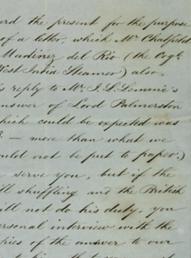 ard the present for the purpose
of a letter, which Mr Chatfield
Martinez del Rio (the Ong.
West India Steamer) also
is reply to Mr. J. L. Lemmie's
answer of Lord Palmerston
which could be expected was
— more than what we
ould not be put to paper.)
serve you, but if the
ll shuffling and the British
ill not do his duty, you
ersonal interview with the
pies of the answer to our